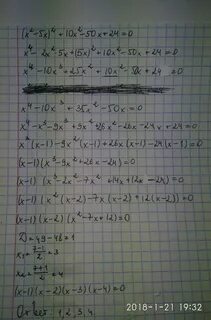 (x²-5x)²+10x²-50x+24=0
x⁴-2x²·5x+(5x)²+10x²-50x+24=0
x⁴-10x³+25x²+10x²-50x+24=0
x⁴-10x³+35x²-50x=0
x⁴-x³-9x³+9x²+26x²-26x-24x+24=0
x³(x-1)-9x²(x-1)+26x(x-1)-24(x-1)=0
(x-1)(x³-9x²+26x-24)=0
(x-1)(x³-2x²-7x²+14x+12x-24)=0
(x-1)(x²(x-2)-7x(x-2)+12(x-2))=0
(x-1)(x-2)(x²-7x+12)=0
D=49-48=1
x₁=7-1/2=3
x₂=7+1/2=4
(x-1)(x-2)(x-3)(x-4)=0
Ответ: 1, 2, 3, 4.
2018-1-21 19:32